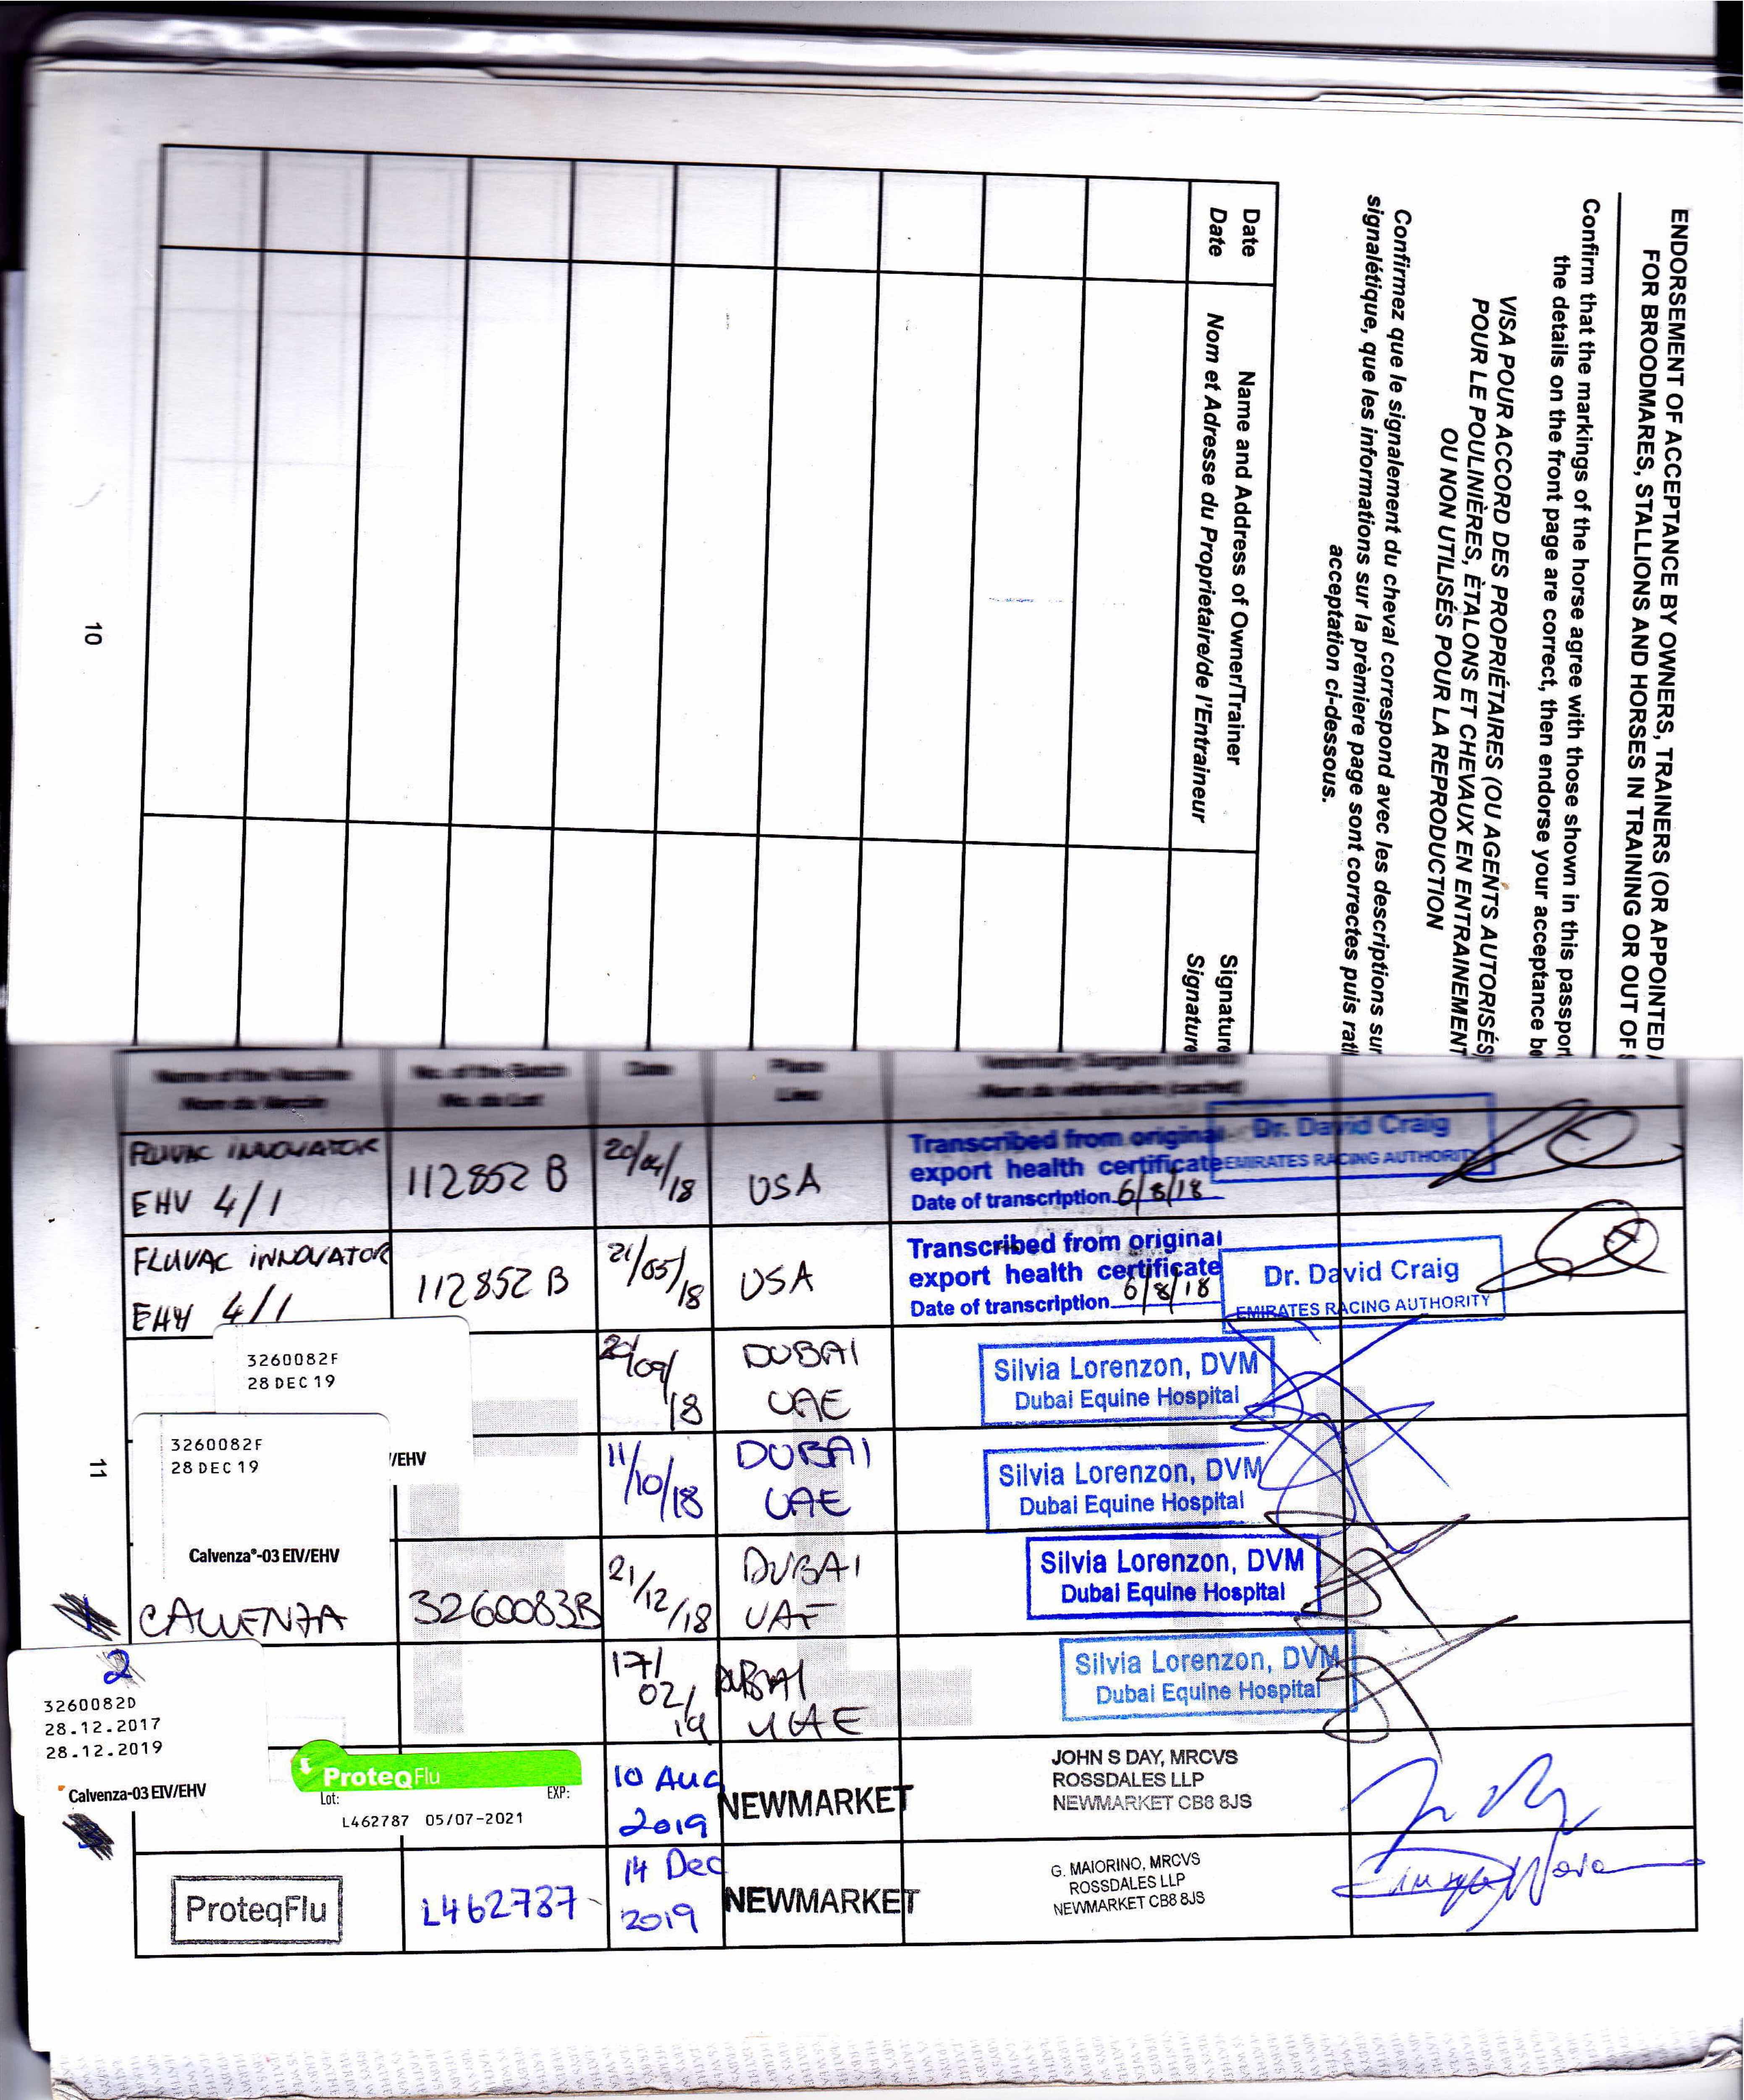 ENDORSEMENT OF ACCEPTANCE BY OWNERS, TRAINERS (OR APPOINTED
FOR BROODMARES, STALLIONS AND HORSES IN TRAINING OR OUT OF
Confirm that the markings of the horse agree with those shown in this passpor
the details on the front page are correct, then endorse your acceptance be
VISA POUR ACCORD DES PROPRIÉTAIRES (OU AGENTS AUTORISÉS
POUR LE POULINIÈRES, ÈTALONS ET CHEVAUX EN ENTRAINEMENT
OU NON UTILISÉS POUR LA REPRODUCTION
Confirmez que le signalement du cheval correspond avec les descriptions sur
signalétique, que les informations sur la prèmiere page sont correctes puis rati
acceptation ci-dessous.
Date Name and Address of Owner/Trainer Signature
Date Nom et Adresse du Proprietaire/de l'Entraineur Signature
10
Name of the Vaccine No. of the Batch Date Place Veterinary Surgeon (name)
Nom du Vaccin No. du Lot Lieu Nom du vétérinaire (cachet)
FLUVAC INNOVATOR
EHV 4/1
112852 B
20/04/18
USA
Transcribed from original
export health certificate
Date of transcription 6/8/18
Dr. David Craig
EMIRATES RACING AUTHORITY
FLUVAC INNOVATOR
EHV 4/1
112852 B
21/05/18
USA
Transcribed from original
export health certificate
Date of transcription 6/8/18
Dr. David Craig
EMIRATES RACING AUTHORITY
3260082F
28 DEC 19
/09/
18
DUBAI
UAE
Silvia Lorenzon, DVM
Dubai Equine Hospital
11
3260082F
28 DEC 19
/EHV
Calvenza®-03 EIV/EHV
11/10/18
DUBAI
UAE
Silvia Lorenzon, DVM
Dubai Equine Hospital
CALVENZA
3260083B
21/12/18
DUBAI
UAE
Silvia Lorenzon, DVM
Dubai Equine Hospital
2
3260082D
28.12.2017
28.12.2019
Calvenza-03 EIV/EHV
17/
02/
19
DUBAI
UAE
Silvia Lorenzon, DVM
Dubai Equine Hospital
ProteqFlu
Lot: EXP:
L462787 05/07-2021
10 Aug
2019
NEWMARKET
JOHN S DAY, MRCVS
ROSSDALES LLP
NEWMARKET CB8 8JS
ProteqFlu
L462787
14 Dec
2019
NEWMARKET
G. MAIORINO, MRCVS
ROSSDALES LLP
NEWMARKET CB8 8JS